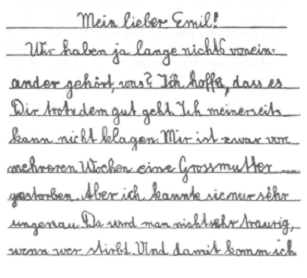 Mein lieber Emil!
Wir haben ja lange nichts vonein-
ander gehört, was? Ich hoffe, dass es
Dir trotzdem gut geht. Ich meinerseits
kann nicht klagen. Mir ist zwar vor
mehreren Wochen eine Grossmutter
gestorben. Aber ich kannte sie nur sehr
ungenau. Da wird man nicht sehr traurig,
wenn wer stirbt. Und damit komm ich